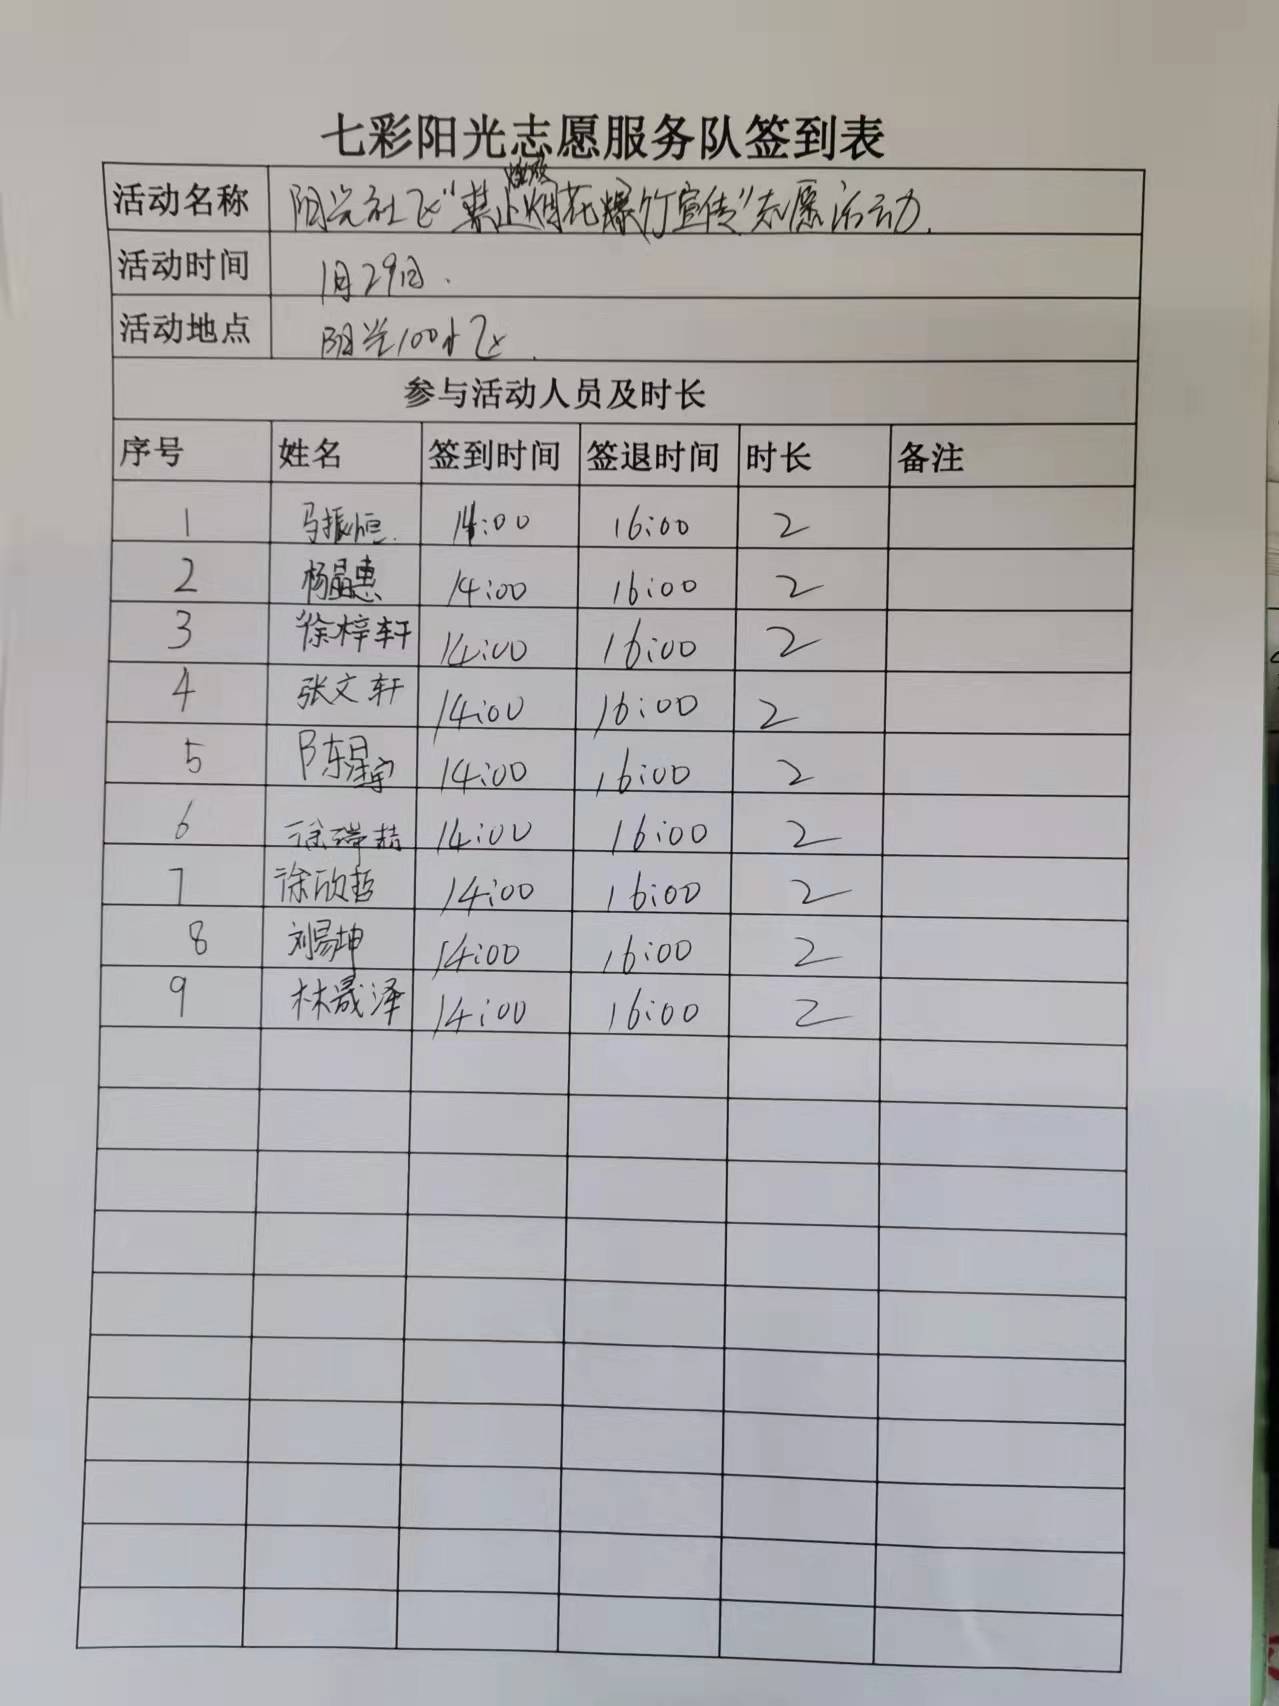 七彩阳光志愿服务队签到表
活动名称 阳光社区“禁止燃放烟花爆竹宣传”志愿活动.
活动时间 1月29日.
活动地点 阳光100小区.
参与活动人员及时长
序号 姓名 签到时间 签退时间 时长 备注
1 马振恒 14:00 16:00 2
2 杨晶惠 14:00 16:00 2
3 徐梓轩 14:00 16:00 2
4 张文轩 14:00 16:00 2
5 陈星宇 14:00 16:00 2
6 徐瑞喆 14:00 16:00 2
7 徐欣哲 14:00 16:00 2
8 刘易坤 14:00 16:00 2
9 林晟泽 14:00 16:00 2